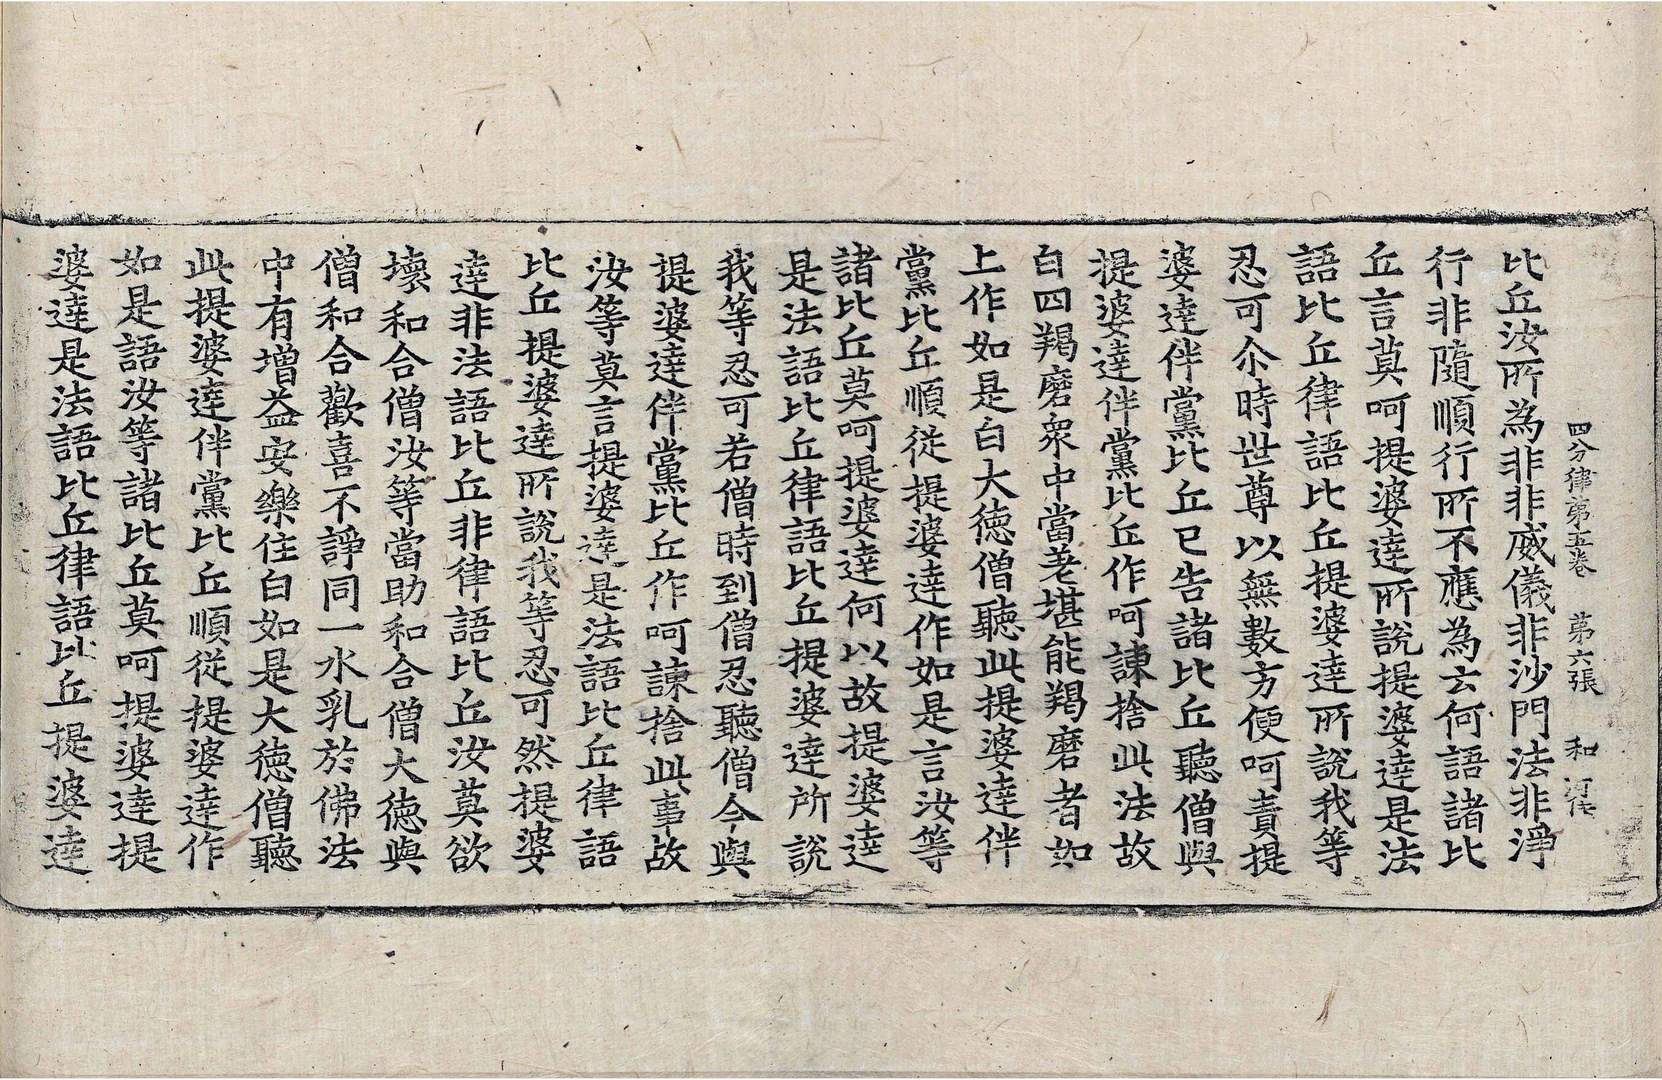 四分律第五卷 第六張 和
比丘汝所為非非威儀非沙門法非淨
行非隨順行所不應為云何語諸比
丘言莫呵提婆達所說提婆達是法
語比丘律語比丘提婆達所說我等
忍可尒時世尊以無數方便呵責提
婆達伴黨比丘已告諸比丘聽僧與
提婆達伴黨比丘作呵諫捨此法故
白四羯磨眾中當差堪能羯磨者如
上作如是白大德僧聽此提婆達伴
黨比丘順從提婆達作如是言汝等
諸比丘莫呵提婆達何以故提婆達
是法語比丘律語比丘提婆達所說
我等忍可若僧時到僧忍聽僧今與
提婆達伴黨比丘作呵諫捨此事故
汝等莫言提婆達是法語比丘律語
比丘提婆達所說我等忍可然提婆
達非法語比丘非律語比丘汝莫欲
壞和合僧汝等當助和合僧大德與
僧和合歡喜不諍同一水乳於佛法
中有增益安樂住白如是大德僧聽
此提婆達伴黨比丘順從提婆達作
如是語汝等諸比丘莫呵提婆達提
婆達是法語比丘律語比丘提婆達